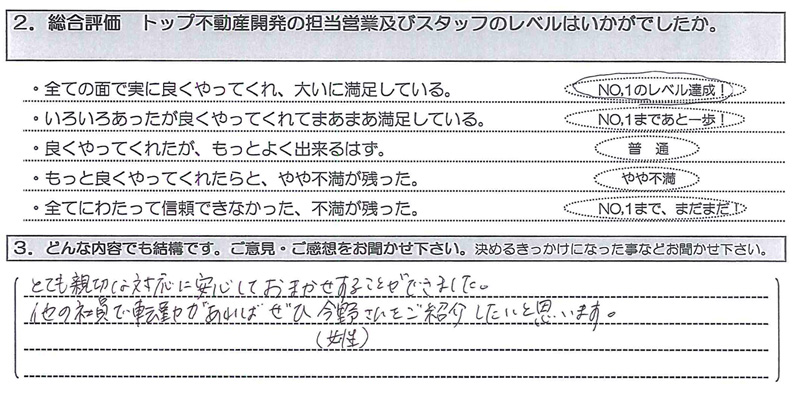 2．総合評価　トップ不動産開発の担当営業及びスタッフのレベルはいかがでしたか。
・全ての面で実に良くやってくれ、大いに満足している。　NO,1のレベル達成！
・いろいろあったが良くやってくれてまあまあ満足している。　NO,1まであと一歩！
・良くやってくれたが、もっとよく出来るはず。　普　通
・もっと良くやってくれたらと、やや不満が残った。　やや不満
・全てにわたって信頼できなかった、不満が残った。　NO,1まで、まだまだ！
3．どんな内容でも結構です。ご意見・ご感想をお聞かせ下さい。決めるきっかけになった事などお聞かせ下さい。
とても親切な対応に安心しておまかせすることができました。
他の社員で転勤があればぜひ今野さんをご紹介したいと思います。
(女性)